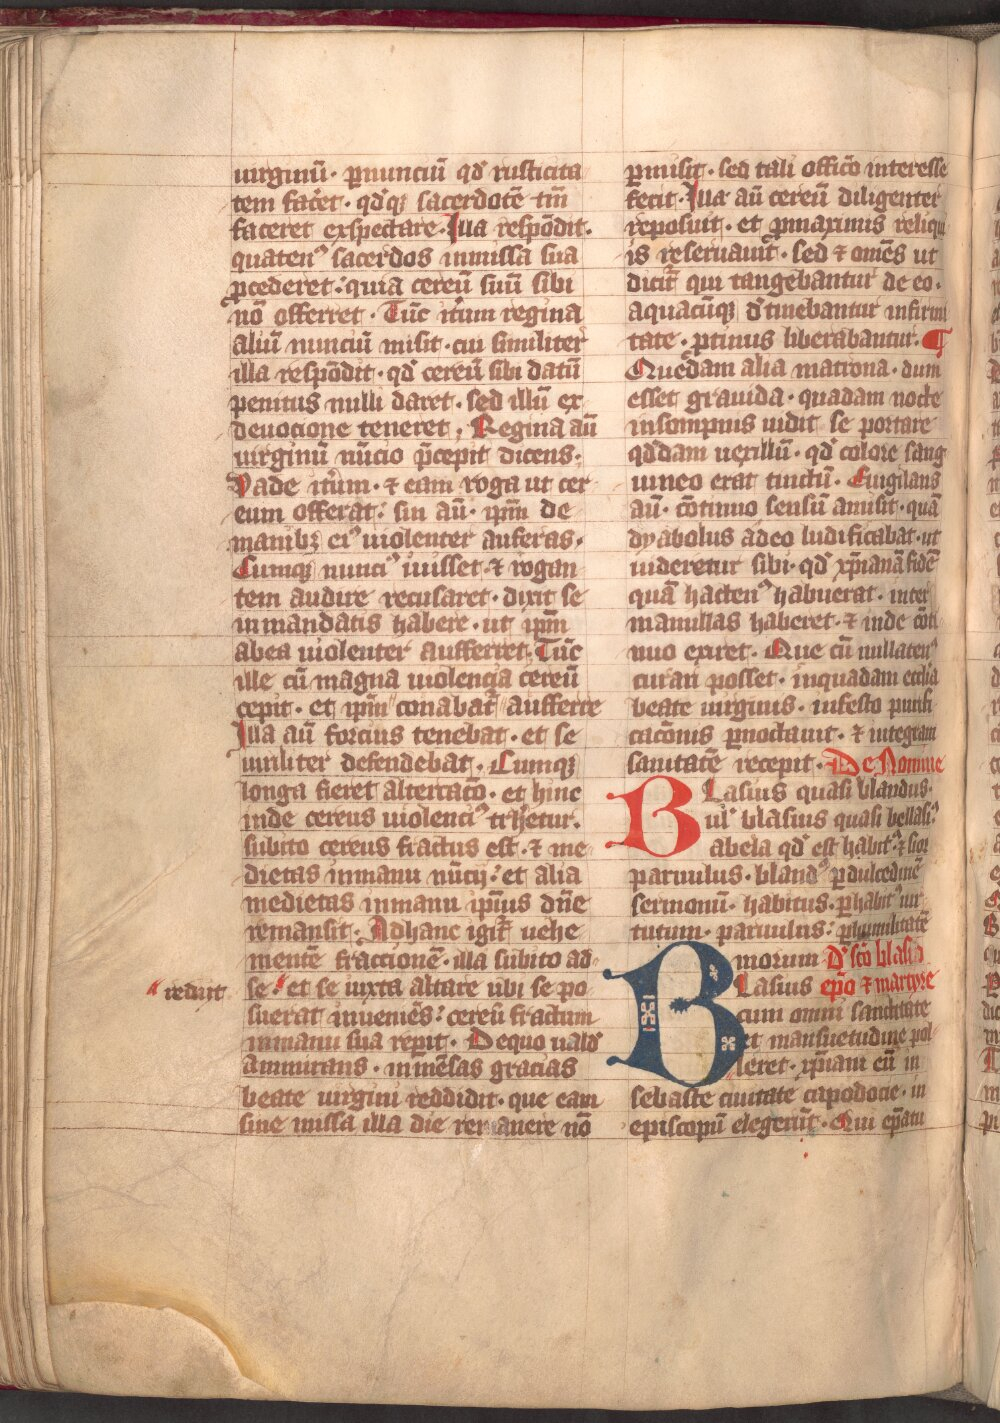 uirginū · ꝑnunciū qđ rusticita
tem fac̄et · qđqꝫ sacerdotē tm̄
faceret exspectare · Illa respōdit ·
quatenꝰ sacerdos inmissa sua
ꝓcederet : quia cereū suū sibi
nō offerret · Tūc it̄um regina
aliū nunciū misit · cui similiter
illa respōdit · qđ cereū sibi datū
penitus nulli daret · sed illū ex
deuocione teneret ; Regina aū
uirginū nūcio p̄cepit dicens ·
Vade it̄um · ⁊ eam roga ut cer
eum offerat : sin aū · ip̄m de
manibꝫ eiꝰ uiolenter auferas ·
Cumqꝫ nunciꝰ iuisset · ⁊ rogan
tem audire recusaret · dixit se
inmandatis habere · ut ip̄m
abea uiolenter aufferret · Tūc
ille cū magna uiolencia cereū
cepit · et ip̄m conabat᷑ aufferre
Illa aū forcius tenebat · et se
uiriliter defendebat · Cumqꝫ
longa fieret altercacō · et hinc
inde cereus uiolenciꝰ trh̄etur ·
subito cereus fractus est · ⁊ me
dietas inmanu nūcij : et alia
medietas inmanu ip̄ius dn̄e
remansit · Adhanc igit᷑ uehe
mentē fraccionē · illa subito ad
rediit
se · et se iuxta altare ubi se po
suerat inueniēs : cereū fractum
inmanu sua rep̄it · Dequo uald̄
ammirans · inmēsas gracias
beate uirgini reddidit · que eam
sine missa illa die remanere nō
ꝑmisit · sed tali offic̄o interesse
fecit · Illa aū cereū diligenter
reposuit · et ꝓmaximis reliqui
is reseruauit · sed ⁊ om̄es ut
dicit᷑ qui tangebantur de eo ·
aquacūqꝫ d̄tinebantur infirmi
tate · ꝓtinus liberabantur ·
Quedam alia matrona · dum
esset grauida · quadam nocte
insompnis uidit se portare
qđdam uexillū · qđ colore sang
uineo erat tinctū · Euigilans
aū · cōtinuo sensū amisit · quā
dyabolus adeo ludificabat · ut
uideretur sibi · qđ xp̄ianā fidē
quā hactenꝰ habuerat · inter
mamillas haberet · ⁊ inde cōti
nuo exiret · Que cū nullatenꝰ
curari posset · inquadam ecclīa
beate uirginis · infesto purifi
cacōnis ꝑnoctauit · ⁊ integram
sanitatē recepit · De Nomine
BLasius quasi blandus ·
ul᷑ blasius quasi bellasiꝰ
abela qđ est habitꝰ ⁊ sior
paruulus · blandꝰ ꝑ dulcedinē
sermonū · habitus · ꝑ habitū uir
tutum · paruulus : ꝑ humilitatē
morum D̄ scō blasio
BLasius ep̄o ⁊ martyre
cum omni sanctitate
et mansuetudine pol
leret · xp̄iani eū in
sebaste ciuitate capodocie · in
episcopū elegerūt · Qui ep̄atu